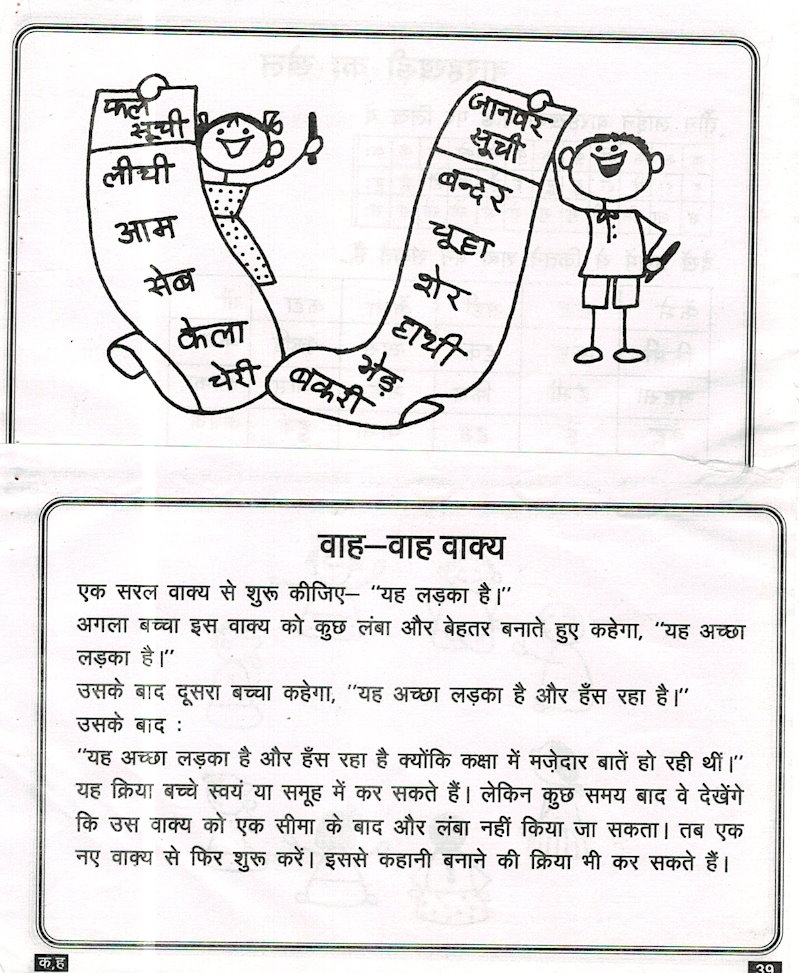 फल
सूची
लीची
आम
सेब
केला
चेरी
जानवर
सूची
बन्दर
चूहा
शेर
हाथी
भेड़
बकरी
वाह–वाह वाक्य
एक सरल वाक्य से शुरू कीजिए– “यह लड़का है।”
अगला बच्चा इस वाक्य को कुछ लंबा और बेहतर बनाते हुए कहेगा, “यह अच्छा
लड़का है।”
उसके बाद दूसरा बच्चा कहेगा, “यह अच्छा लड़का है और हँस रहा है।”
उसके बाद :
“यह अच्छा लड़का है और हँस रहा है क्योंकि कक्षा में मज़ेदार बातें हो रही थीं।”
यह क्रिया बच्चे स्वयं या समूह में कर सकते हैं। लेकिन कुछ समय बाद वे देखेंगे
कि उस वाक्य को एक सीमा के बाद और लंबा नहीं किया जा सकता। तब एक
नए वाक्य से फिर शुरू करें। इससे कहानी बनाने की क्रिया भी कर सकते हैं।
क,ह
39